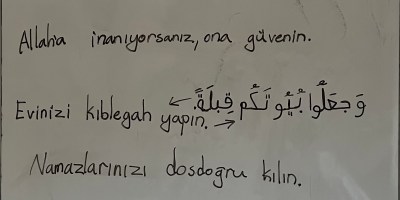 Allaha inanıyorsanız, ona güvenin.
Evinizi kıblegah yapın. وَجعَلُوا بُيُو تَكُم قِبلَةً
Namazlarınızı dosdoğru kılın.